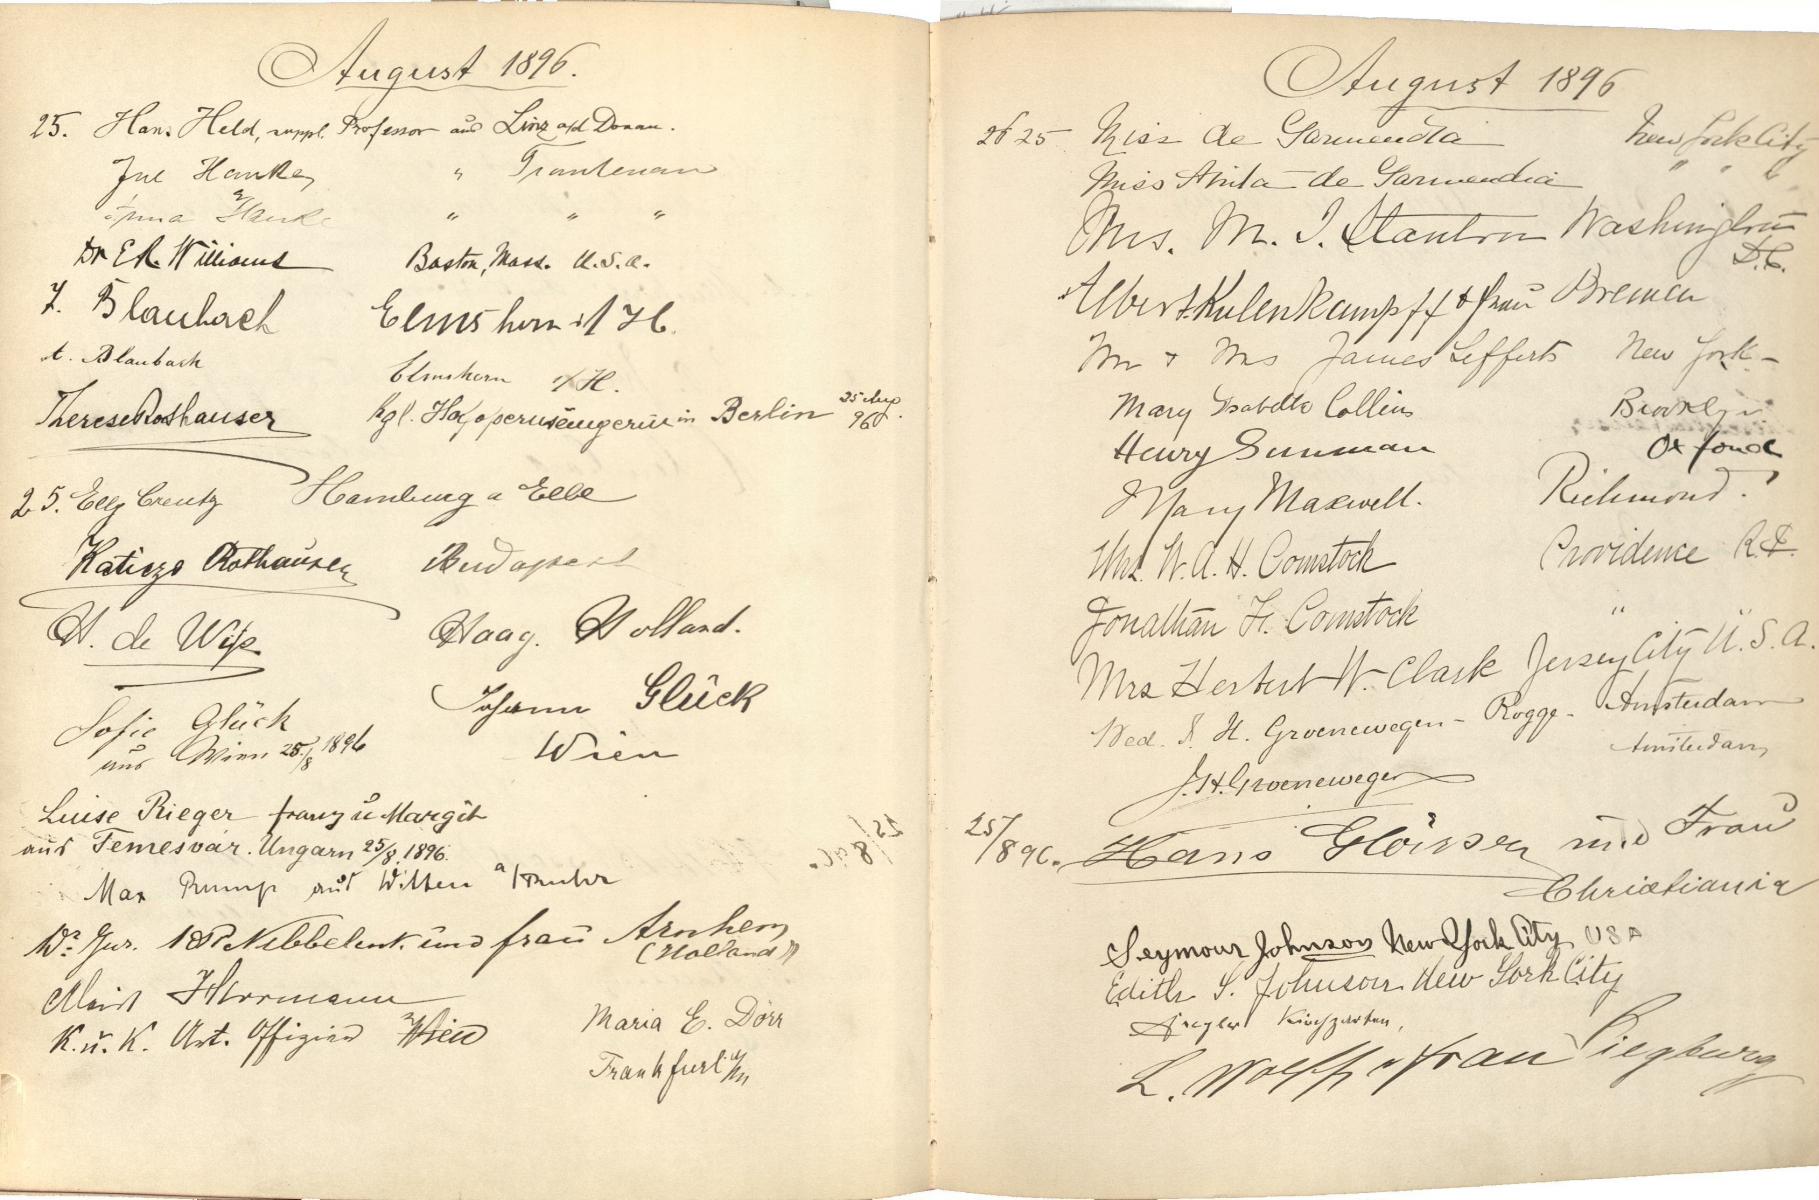 August 1896.
25. Hans Held, suppl. Professor aus Linz a/d Donau.
Jul Hanke, " Trautenau
Anna Hanke " " "
Dr E R Williams Boston, Mass. U.S.A.
Blaubach Elmshorn i/H.
A. Blaubach Elmshorn i/H.
Therese Rothauser kgl. Hofopernsängerin in Berlin 25 Aug 96.
25. Elly Creutz Hamburg a Elbe
Rothauser Budapest
H. de Wijs Haag. Holland.
Sofie Glück
aus Wien 25./8 1896
Johann Glück
Wien
Luise Rieger franz u Margit
aus Temesvár. Ungarn 25/8. 1896.
Max Rump aus Witten a/Ruhr
Dr. Jur. Nibbelink und frau Arnhem
(Holland)
Herrmann
K. u. K. Art. Offizier Wien
Maria E. Dörr
Frankfurt a/M
August 1896
26 25 Miss de Garmendia New York City
Miss Anita de Garmendia " " "
Mrs. M. J. Stanton Washington
D.C.
Albert Kulenkampff & frau Bremen
Mr & Mrs James Lefferts New York –
Mary Isabella Collins Brooklyn
Henry Sunman Oxford
Mary Maxwell. Richmond.
Mrs. W. A. H. Comstock Providence R.I.
Jonathan F. Comstock " "
Mrs Herbert W. Clark Jersey City U.S.A.
Wed. J. H. Groenewegen – Rogge – Amsterdam
J. H. Groenewegen Amsterdam
25/8 96. Hans und Frau
Christiania
Seymour Johnson New York City USA
Edith S. Johnson New York City
Kirchgarten,
L. Wolff u frau Siegburg